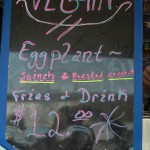 VEGAN
Eggplant ~
Spinach & Roasted
Fries + Drink
$12.00